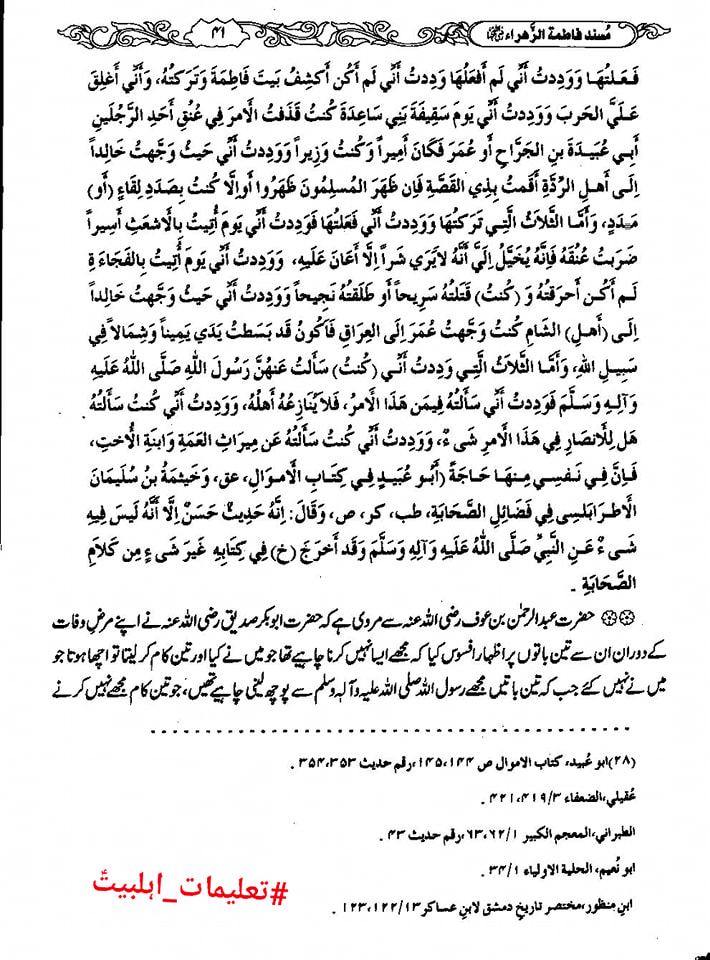 مُسند فاطمة الزَّهراء
۴۱
فَعَلتُهَا وَوَدِدتُ أَنِّي لَم أَفعَلهَا وَدِدتُ أَنِّي لَم أَكُن أَكشِفُ بَيتَ فَاطِمَةَ وَتَرَكتُهُ، وَأَنِّي أَغلِقَ
عَلَيَّ الحَربَ وَوَدِدتُ أَنِّي يَومَ سَقِيفَةِ بَنِي سَاعِدَةَ كُنتُ قَذَفتُ الاَمرَ فِي عُنُقِ أَحَدِ الرَّجُلَينِ
أَبِي عُبَيدَةَ بنِ الجَرَّاحِ أَو عُمَرَ فَكَانَ أَمِيراً وَكُنتُ وَزِيراً وَوَدِدتُ أَنِّي حَيثُ وَجَّهتُ خَالِداً
إِلَى أَهلِ الرِّدَّةِ أَقَمتُ بِذِي القَصَّةِ فَإِن ظَهَرَ المُسلِمُونَ ظَهَرُوا أَو اِلَّا كُنتُ بِصَدَدِ لِقَاءٍ (أَو)
مَدَدٍ، وَأَمَّا الثَّلَاثُ الَّتِي تَرَكتُهَا وَوَدِدتُ أَنِّي فَعَلتُهَا فَوَدِدتُ أَنِّي يَومَ أُتِيتُ بِالاَشعَثِ أَسِيراً
ضَرَبتُ عُنُقَهُ فَإِنَّهُ يُخَيَّلُ إِلَيَّ أَنَّهُ لَايَرَى شَراً إِلَّا أَعَانَ عَلَيهِ، وَوَدِدتُ أَنِّي يَومَ أُتِيتُ بِالفَجَاءَةِ
لَم أَكُن أَحرَقتُهُ وَ (كُنتُ) قَتَلتُهُ سَرِيحاً أَو طَلَقتُهُ نَجِيحاً وَوَدِدتُ أَنِّي حَيثُ وَجَّهتُ خَالِداً
إِلَى (أَهلِ) الشَامِ كُنتُ وَجَّهتُ عُمَرَ إِلَى العِرَاقِ فَاَكُونُ قَد بَسَطتُ يَدَي يَمِيناً وَشِمَالاً فِي
سَبِيلِ اللّٰهِ، وَأَمَّا الثَّلَاثُ الَّتِي وَدِدتُ أَنِّي (كُنتُ) سَأَلتُ عَنهُنَّ رَسُولَ اللّٰهِ صَلَّى اللّٰهُ عَلَيهِ
وَآلِهِ وَسَلَّمَ فَوَدِدتُ أَنِّي سَأَلتُهُ فِيمَن هَذَا الاَمرُ، فَلاَ يُنَازِعُهُ أَهلُهُ، وَوَدِدتُ أَنِّي كُنتُ سَأَلتُهُ
هَل لِلاَنصَارِ فِي هَذَا الاَمرِ شَیءٌ، وَوَدِدتُ أَنِّي كُنتُ سَأَلتُهُ عَن مِيرَاثِ العَمَةِ وَابنَةِ الاُختِ،
فَإِنَّ فِي نَفسِي مِنهَا حَاجَةً (أَبُو عُبَيدٍ فِي كِتَابِ الاَموَالِ، عق، وَخَيثَمَةُ بنُ سُلَيمَانَ
الاَطرَابَلسِي فِي فَضَائِلِ الصَّحَابَةِ، طب، كر، ص، وَقَالَ: إِنَّهُ حَدِيثٌ حَسَنٌ إِلَّا أَنَّهُ لَيسَ فِيهِ
شَیءٌ عَنِ النَّبِيِّ صَلَّى اللّٰهُ عَلَيهِ وَآلِهِ وَسَلَّمَ وَقَد أَخرَجَ (خ) فِي كِتَابِهِ غَيرَ شَیءٍ مِن كَلاَمِ
الصَّحَابَةِ ۔
حضرت عبدالرحمٰن بن عوف رضی اللہ عنہ سے مروی ہے کہ حضرت ابوبکر صدیق رضی اللہ عنہ نے اپنے مرضِ وفات
کے دوران ان سے تین باتوں پر اظہارِ افسوس کیا کہ مجھے ایسا نہیں کرنا چاہیے تھا جو میں نے کیا اور تین کام کر لیتا تو اچھا ہوتا جو
میں نے نہیں کئے جب کہ تین باتیں مجھے رسول اللہ صلی اللہ علیہ وآلہ وسلم سے پوچھ لینی چاہیے تھیں، جو تین کام مجھے نہیں کرنے
(۲۸) ابو عُبید، کتاب الاموال ص ۱۴۴، ۱۴۵، رقم حدیث ۳۵۳، ۳۵۴ ۔
عُقیلی، الضعفاء ۳/۴۱۹، ۴۲۱ ۔
الطبرانی، المعجم الکبیر ۱/۶۲، ۶۳، رقم حدیث ۴۳ ۔
ابو نُعیم، الحلیة الاولیاء ۱/۳۴ ۔
ابنِ منظور، مختصر تاریخ دمشق لابنِ عساکر ۱۳/۱۲۲، ۱۲۳ ۔
#تعلیمات_اہلبیتؑ